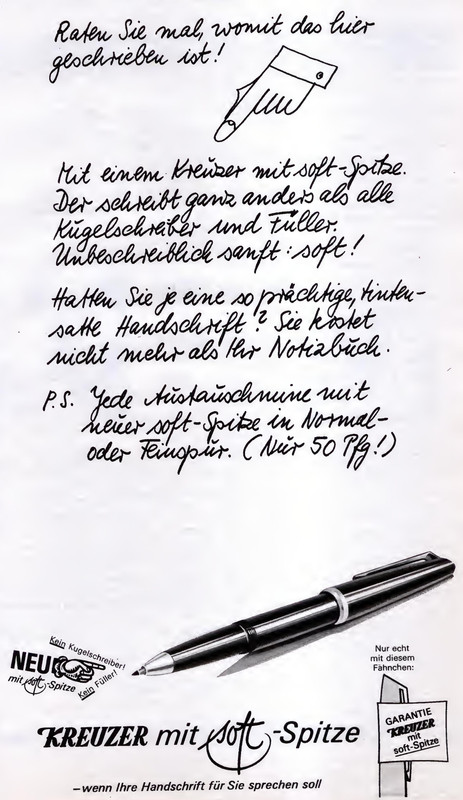 Raten Sie mal, womit das hier
geschrieben ist!
Mit einem Kreuzer mit soft-Spitze.
Der schreibt ganz anders als alle
Kugelschreiber und Füller.
Unbeschreiblich sanft: soft!
Hatten Sie je eine so prächtige, tinten-
satte Handschrift? Sie kostet
nicht mehr als Ihr Notizbuch.
P.S. Jede Austauschmine mit
neuer soft-Spitze in Normal-
oder Feinspur. (Nur 50 Pfg!)
Kein Kugelschreiber!
NEU
mit soft-Spitze
Kein Füller!
Nur echt
mit diesem
Fähnchen:
GARANTIE
KREUZER
mit
soft-Spitze
KREUZER mit soft-Spitze
–wenn Ihre Handschrift für Sie sprechen soll